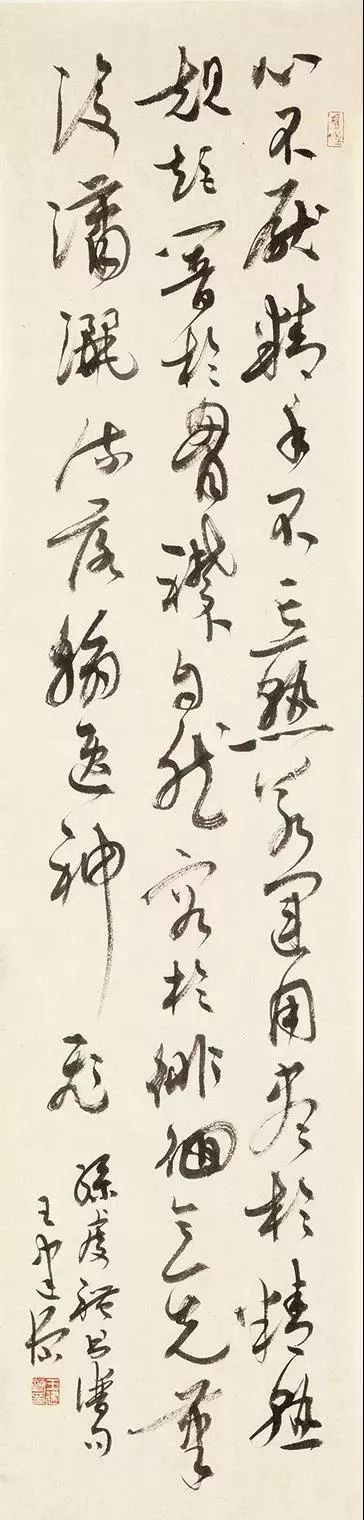 心不厭精手不忘熟若運用盡於精熟
規矩闇於胷襟自然容於徘徊意先筆
後瀟灑流落翰逸神飛
孫虔禮書譜句
王